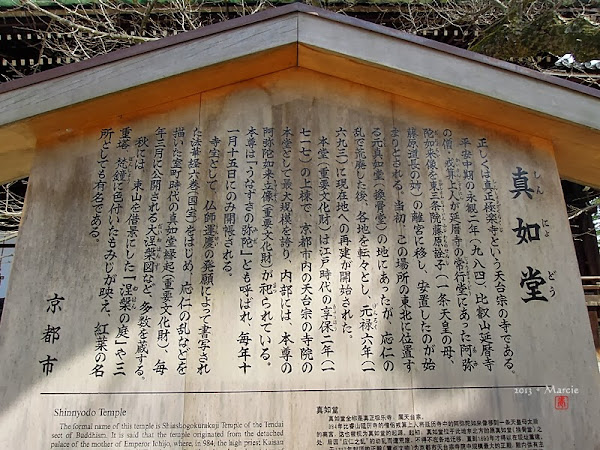 真如堂
しんにょどう
正しくは真正極楽寺という天台宗の寺である。
平安中期の永観二年(九八四)、比叡山延暦寺
の僧、戒算上人が延暦寺の常行堂にあった阿弥
陀如来像を東三条院藤原詮子(一条天皇の母、
藤原道長の姉)の離宮に移し、安置したのが始
まりとされる。当初、この場所の東北に位置す
る元真如堂(換骨堂)の地にあったが、応仁の
乱で荒廃した後、各地を転々とし、元禄六年(一
六九三)に現在地への再建が開始された。
本堂(重要文化財)は江戸時代の享保二年(一
七一七)の上棟で、京都市内の天台宗の寺院の
本堂として最大規模を誇り、内部には、本尊の
阿弥陀如来立像(重要文化財)が祀られている。
本尊は「うなずきの弥陀」とも呼ばれ、毎年十
一月十五日にのみ開帳される。
寺宝として、仏師運慶の発願によって書写され
た法華経六巻(国宝)をはじめ、応仁の乱などを
描いた室町時代の真如堂縁起(重要文化財)、毎
年三月に公開される大涅槃図など、多数を蔵する。
秋には、東山を借景にした「涅槃の庭」や三
重塔、梵鐘に色付いたもみじが映え、紅葉の名
所としても有名である。
京都市
Shinnyodo Temple
The formal name of this temple is Shinshogokurakuji Temple of the Tendai
sect of Buddhism. It is said that the temple originated from the detached
palace of the mother of Emperor Ichijo, where, in 984, the high priest Kaisan
真如堂
真如堂全称是真正极乐寺，属天台宗。
2013 • Marcie